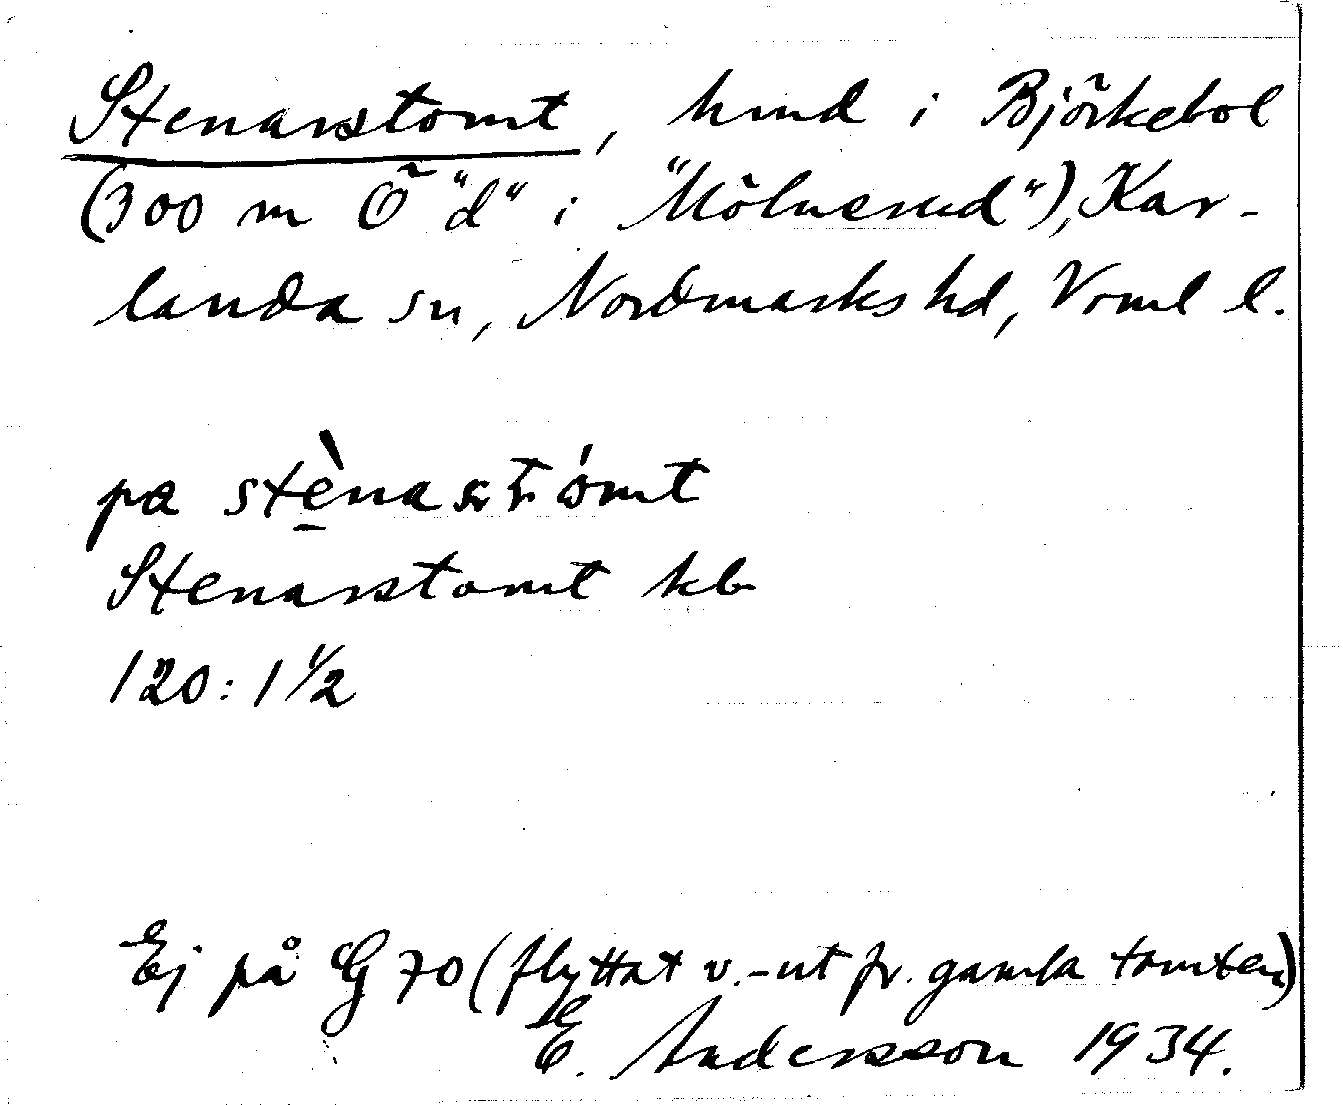 Stenarstomt, hmd i Björkebol
(300 m Ö "d" i "Mölnerud"), Kar-
landa sn, Nordmarks hd, Verml l.
pa stènastómt
Stenarstomt kb
120: 1 1/2
Ej på G 70 (flyttat v.-ut fr. gamla tomten)
E. Andersson 1934.